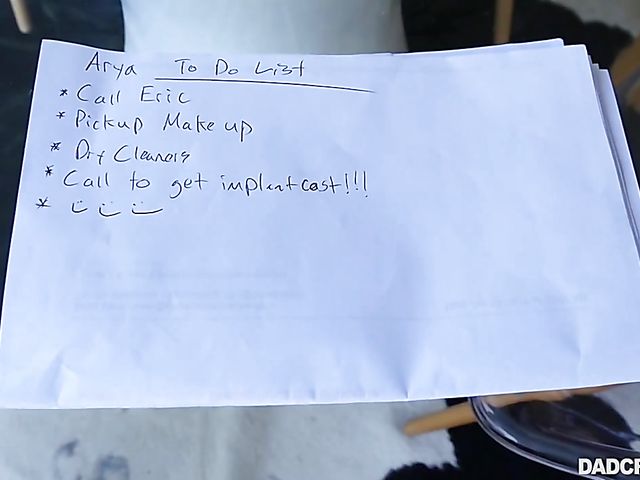 Arya To Do List
* Call Eric
* Pickup Make up
* Dry Cleaners
* Call to get implant cost!!!
* :) :) :)
DADCR